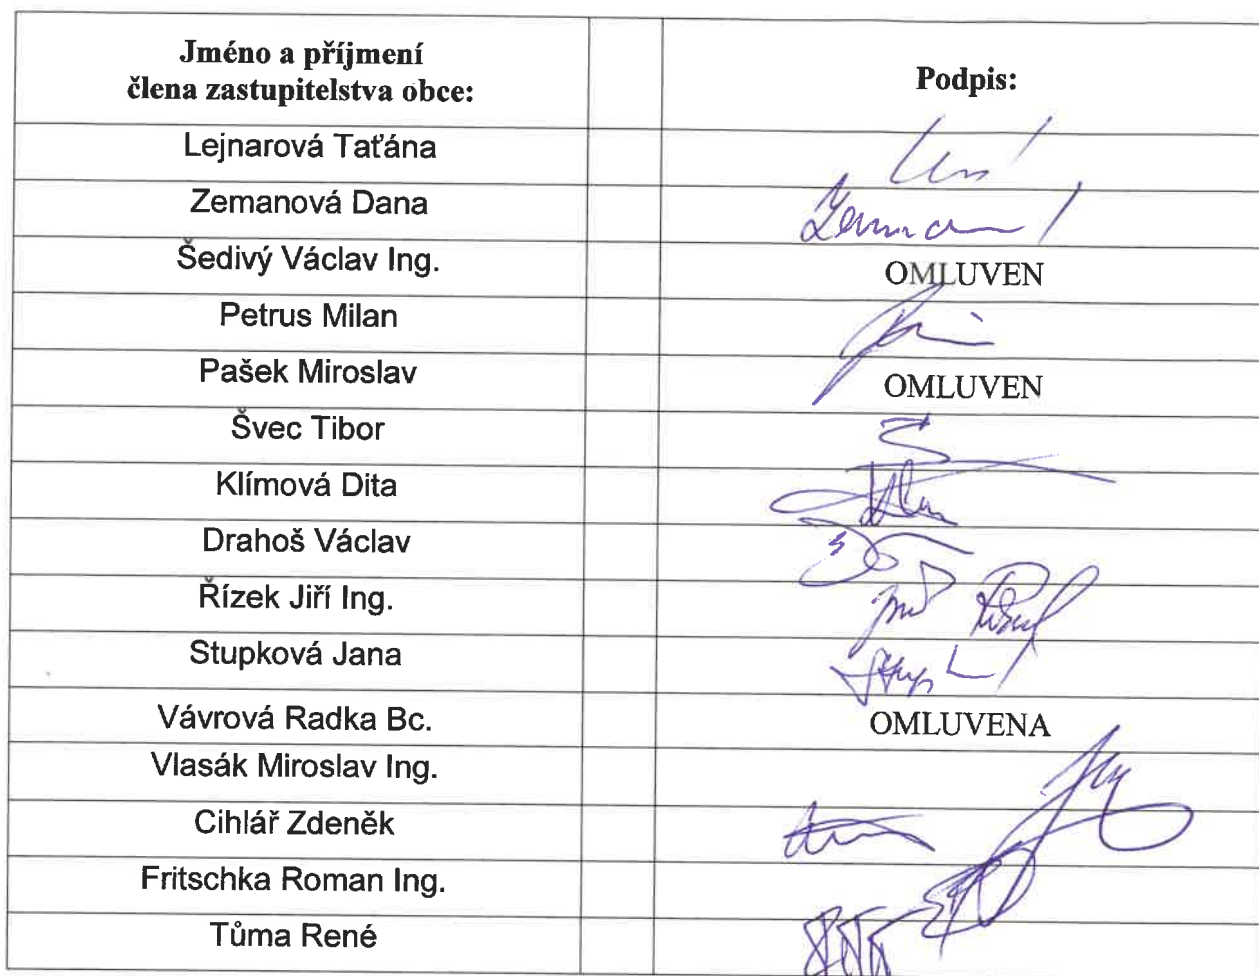 Jméno a příjmení
člena zastupitelstva obce:
Podpis:
Lejnarová Taťána
Zemanová Dana
Šedivý Václav Ing.
OMLUVEN
Petrus Milan
Pašek Miroslav
OMLUVEN
Švec Tibor
Klímová Dita
Drahoš Václav
Řízek Jiří Ing.
Stupková Jana
Vávrová Radka Bc.
OMLUVENA
Vlasák Miroslav Ing.
Cihlář Zdeněk
Fritschka Roman Ing.
Tůma René